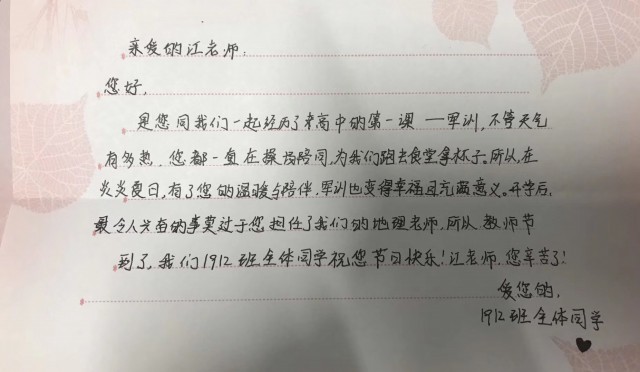 亲爱的江老师:
您好,
是您同我们一起经历了来高中的第一课——军训,不管天气
有多热,您都一直在操场陪同,为我们跑去食堂拿杯子。所以,在
炎炎夏日,有了您的温暖与陪伴,军训也变得幸福且充满意义。开学后,
最令人兴奋的事莫过于您担任了我们的地理老师,所以,教师节
到了,我们1912班全体同学祝您节日快乐!江老师,您辛苦了!
爱您的,
1912班全体同学